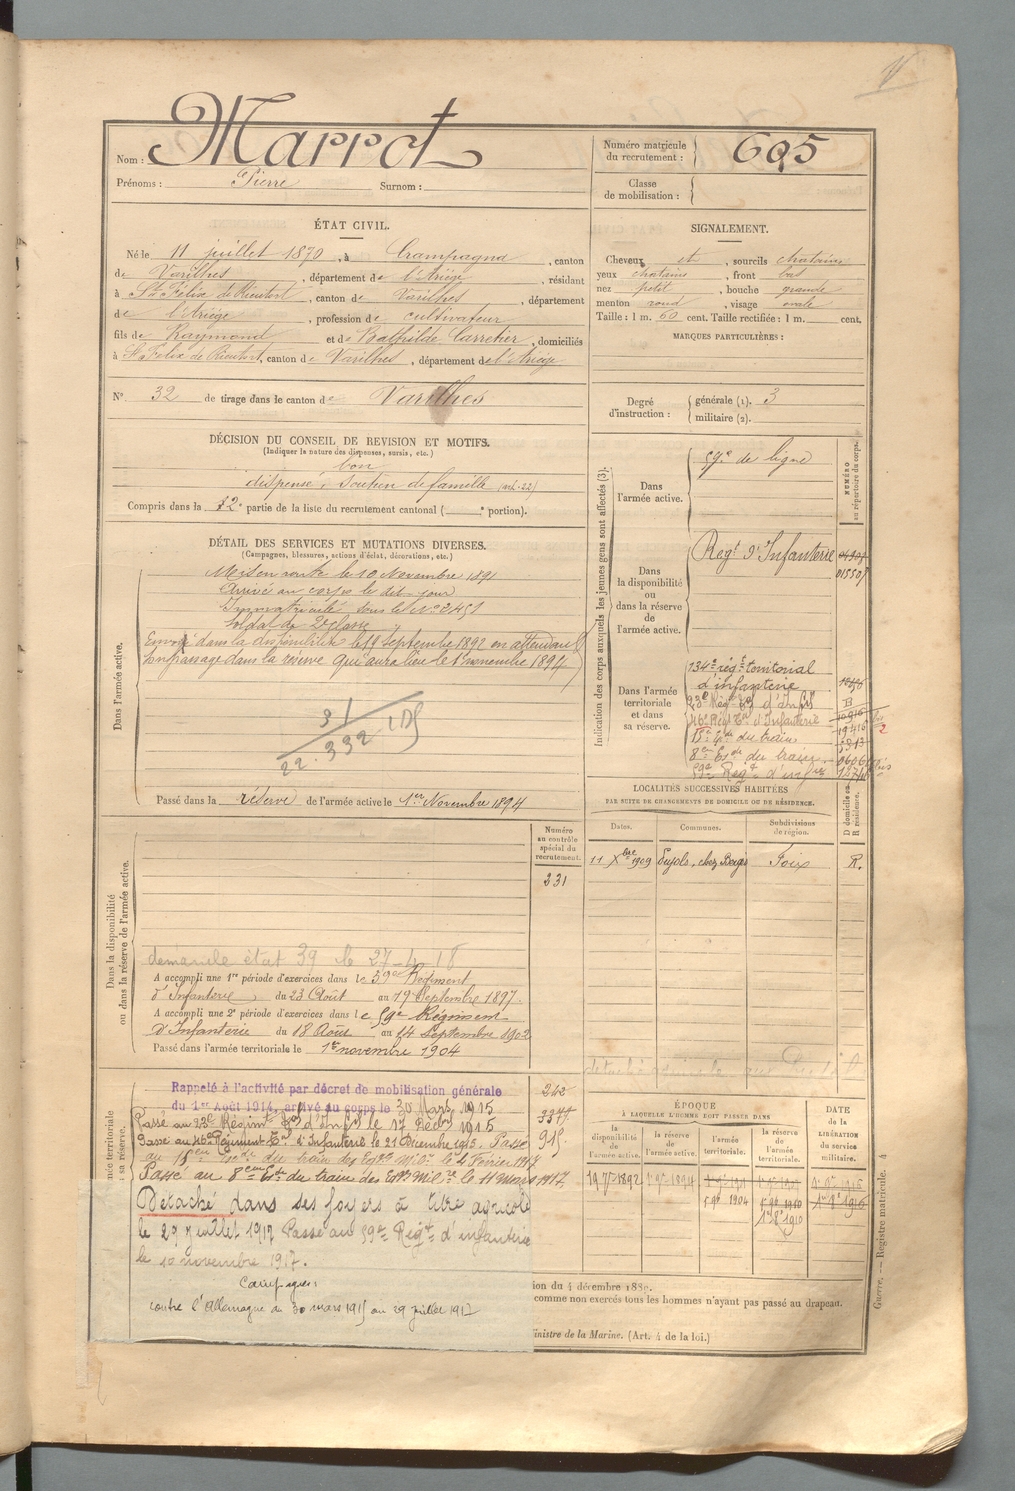 Nom : Marrot
Prénoms : Pierre Surnom :
Numéro matricule du recrutement : 695
Classe de mobilisation :
ÉTAT CIVIL.
Né le 11 juillet 1870, à Crampagna, canton
de Varilhes, département de l'Ariège, résidant
à St Félix de Rieutort, canton de Varilhes, département
de l'Ariège, profession de cultivateur
fils de Raymond et de Bathilde Carretier, domiciliés
à St Felix de Rieutort, canton de Varilhes, département de l'Ariège
N° 32 de tirage dans le canton de Varilhes
SIGNALEMENT.
Cheveux et, sourcils chatains
yeux chatains, front bas
nez petit, bouche grande
menton rond, visage ovale
Taille : 1 m. 60 cent. Taille rectifiée : 1 m. cent.
MARQUES PARTICULIÈRES :
Degré d'instruction : générale (1). 3
militaire (2).
DÉCISION DU CONSEIL DE REVISION ET MOTIFS.
(Indiquer la nature des dispenses, sursis, etc.)
bon
dispensé, Soutien de famille (art. 22)
Compris dans la 2e partie de la liste du recrutement cantonal ( e portion).
DÉTAIL DES SERVICES ET MUTATIONS DIVERSES.
(Campagnes, blessures, actions d'éclat, décorations, etc.)
Dans l'armée active.
Mis en route le 10 Novembre 1891
Arrivé au corps le dit jour
Immatriculé sous le N° 2451
Soldat de 2e classe
Envoyé dans la disponibilité le 19 Septembre 1892 en attendant
son passage dans la réserve qui aura lieu le 1er novembre 1894
31
22.332
Passé dans la réserve de l'armée active le 1er Novembre 1894
Indication des corps auxquels les jeunes gens sont affectés (3).
NUMÉRO au répertoire du corps.
Dans l'armée active.
59e de ligne
Dans la disponibilité ou dans la réserve de l'armée active.
Regt d'Infanterie
015507
Dans l'armée territoriale et dans sa réserve.
134e régt territorial
d'infanterie
23e Régt Ter d'Infie
B
10916
46e Régt Ter d'Infanterie
19416
15e Esc du train
8em Esde du train
59e Regt d'infie
LOCALITÉS SUCCESSIVES HABITÉES
PAR SUITE DE CHANGEMENTS DE DOMICILE OU DE RÉSIDENCE.
Dates. Communes. Subdivisions de région. D domicile ou R résidence.
11 Xbre 1909 Eujols, chez Bergé Foix R.
Dans la disponibilité ou dans la réserve de l'armée active.
Numéro au contrôle spécial du recrutement.
331
demande état 39 le 27-4-18
A accompli une 1re période d'exercices dans le 59e Régiment
d'Infanterie, du 23 Août au 19 Septembre 1897.
A accompli une 2e période d'exercices dans le 59e Régiment
d'Infanterie du 18 Août au 14 Septembre 1902
Passé dans l'armée territoriale le 1er novembre 1904
Rappelé à l'activité par décret de mobilisation générale
du 1er Août 1914, arrivé au corps le 30 Mars 1915
Passé au 23e Régimt Ter d'Infie le 17 Décbre 1915
Passé au 46e Régiment Ter d'Infanterie le 21 Décembre 1915. Passé
au 15em Escde du train des Eqges Milres le 4 Février 1917
Passé au 8em Esde du train des Eqges Milres le 11 mars 1917
Détaché dans ses foyers à titre agricole
le 29 juillet 1917 Passé au 59e Régt d'infanterie
le 10 novembre 1917.
Campagnes
contre l'Allemagne du 30 mars 1915 au 29 juillet 1917
262
3347
915
ÉPOQUE
À LAQUELLE L'HOMME DOIT PASSER DANS
la disponibilité de l'armée active. la réserve de l'armée active. l'armée territoriale. la réserve de l'armée territoriale.
DATE DE LA LIBÉRATION du service militaire.
19 7e 1892
1er 9e 1894
1er 9e 1904
1er 8e 1910
ion du 4 décembre 1889.
comme non exercés tous les hommes n'ayant pas passé au drapeau.
inistre de la Marine. (Art. 4 de la loi.)
Guerre. — Registre matricule. 4